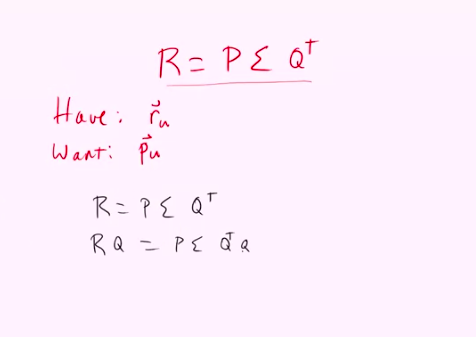 R = P Σ Qᵀ
Have: r⃗ᵤ
Want: p⃗ᵤ
R = P Σ Qᵀ
R Q = P Σ Qᵀ Q